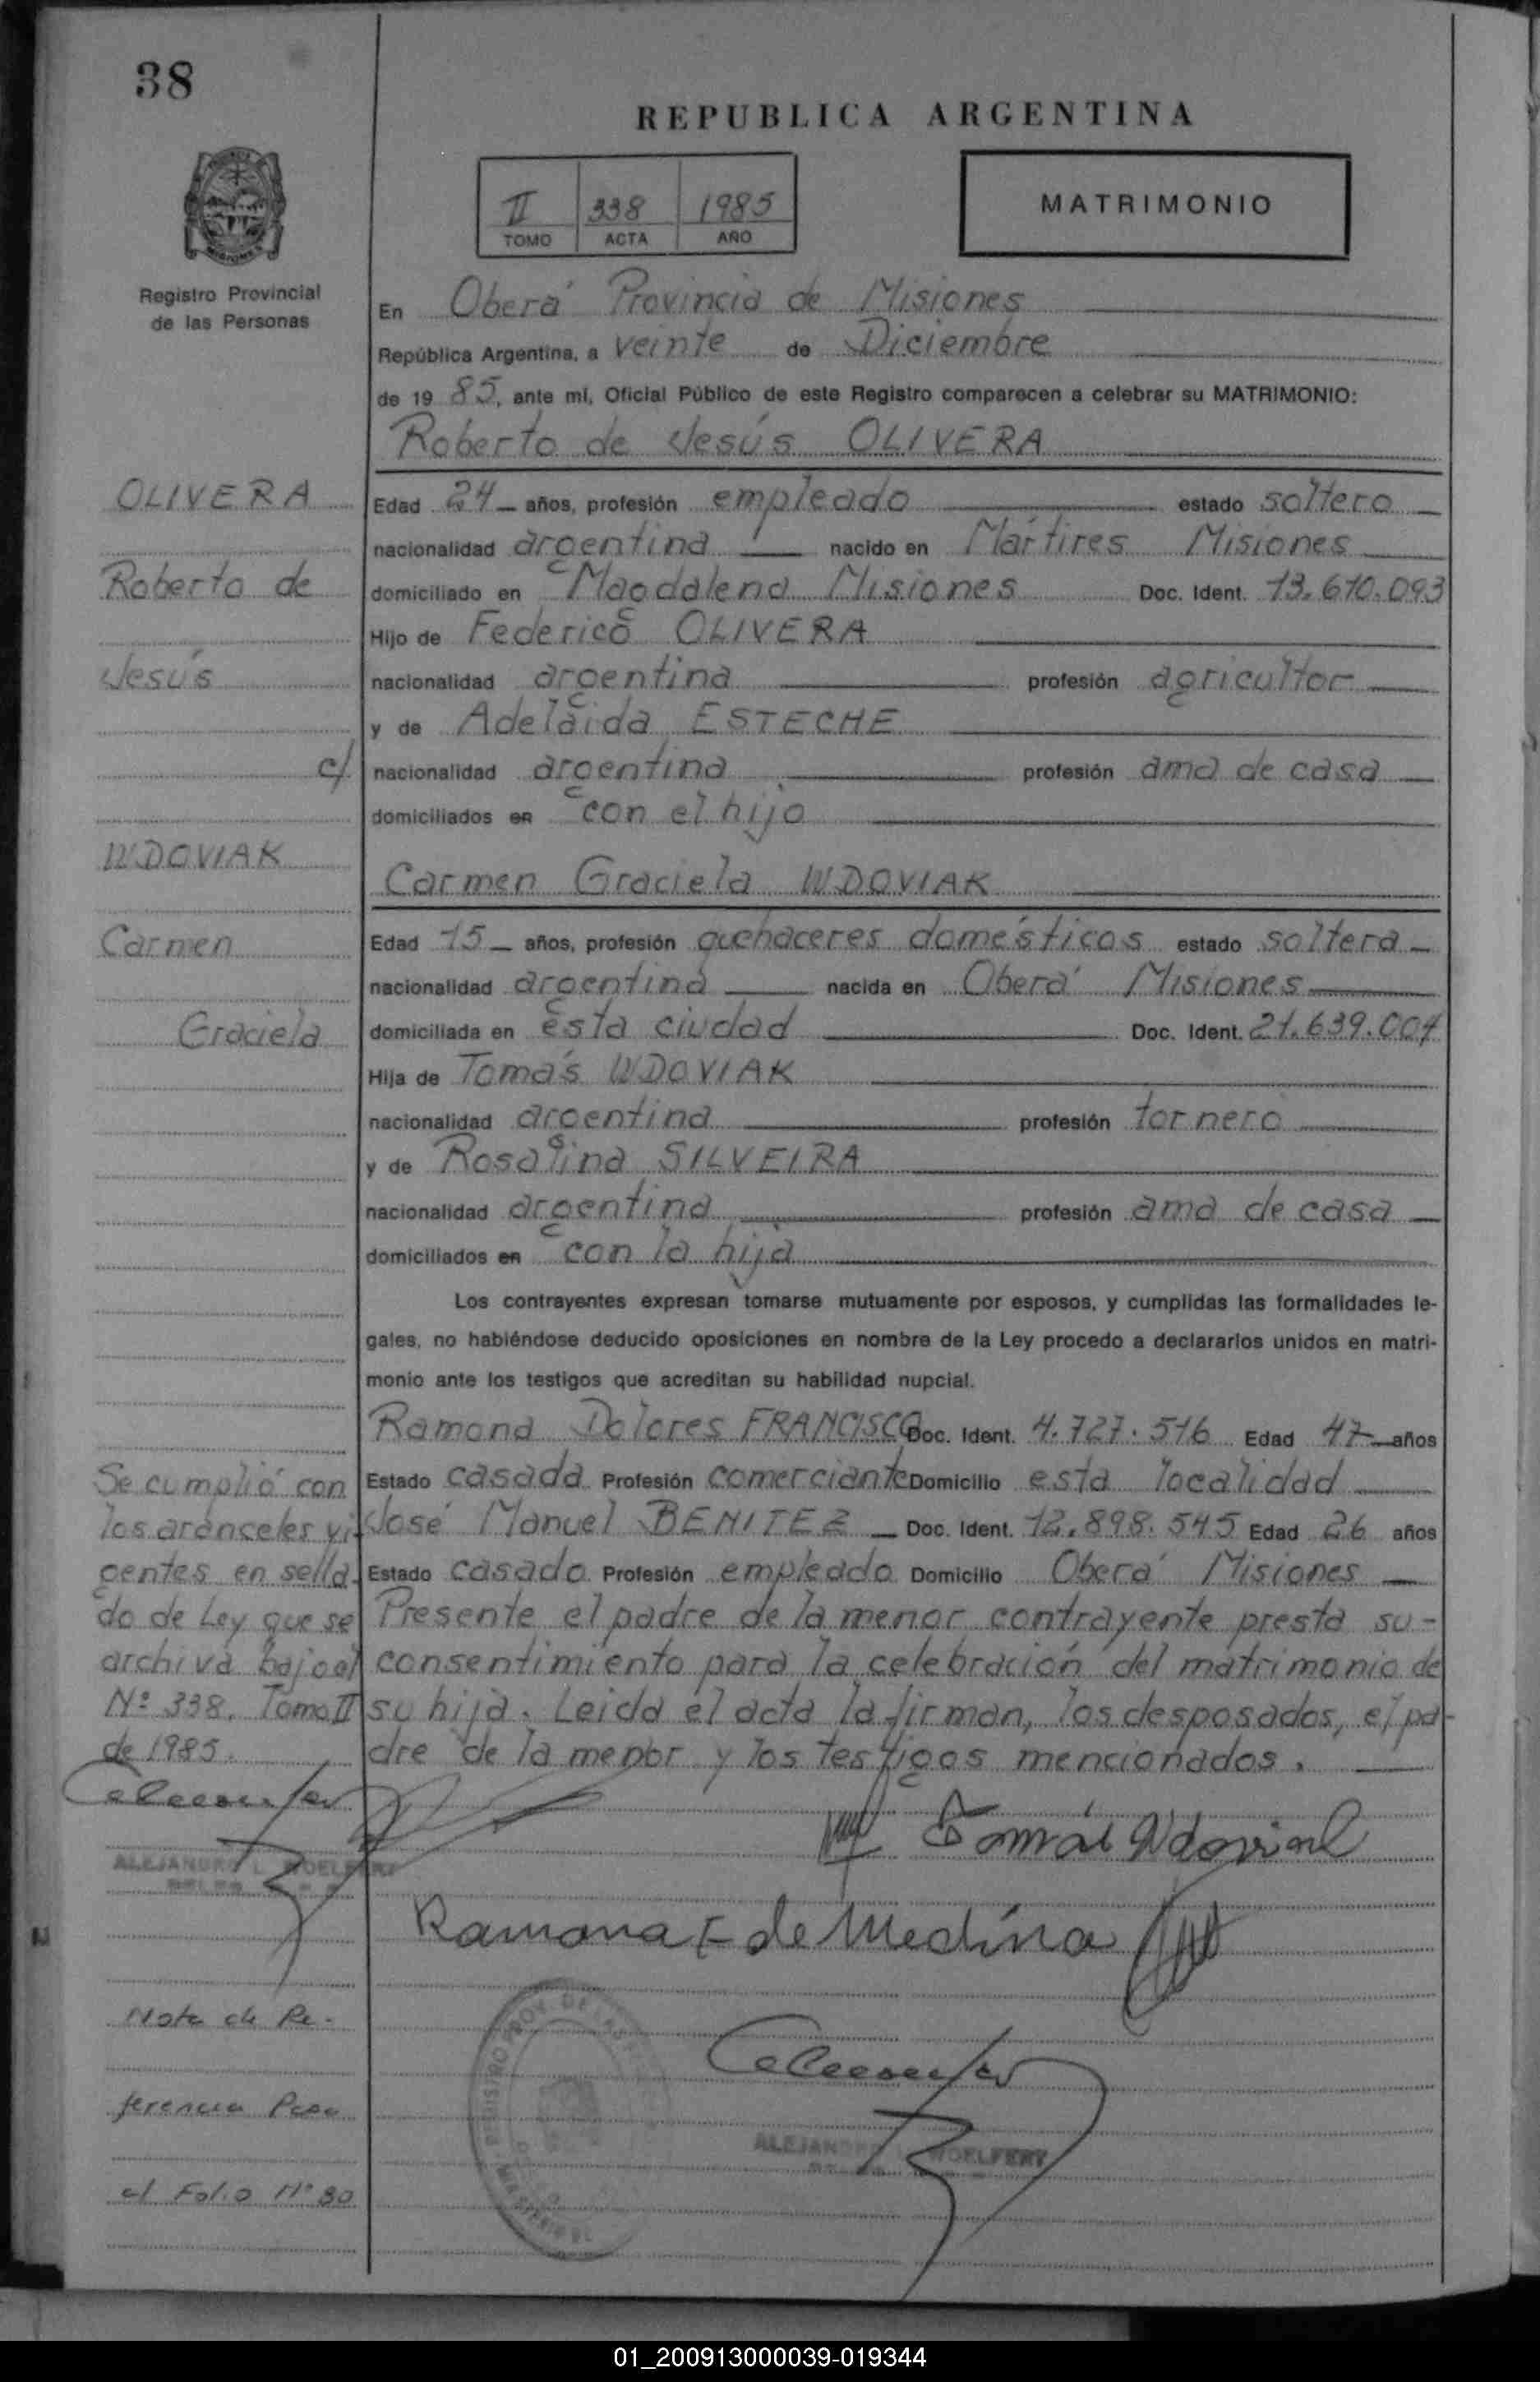 38
REPUBLICA ARGENTINA
II 338 1985
TOMO ACTA AÑO
MATRIMONIO
Registro Provincial
de las Personas
En Oberá Provincia de Misiones
República Argentina, a veinte de Diciembre
de 19 85, ante mí, Oficial Público de este Registro comparecen a celebrar su MATRIMONIO:
Roberto de Jesús OLIVERA
OLIVERA
Roberto de
Jesús
c/
WDOVIAK
Carmen
Graciela
Edad 24 años, profesión empleado estado soltero
nacionalidad argentina nacido en Mártires Misiones
domiciliado en Magdalena Misiones Doc. Ident. 13.610.093
Hijo de Federico OLIVERA
nacionalidad argentina profesión agricultor
y de Adelaida ESTECHE
nacionalidad argentina profesión ama de casa
domiciliados en con el hijo
Carmen Graciela WDOVIAK
Edad 15 años, profesión quehaceres domésticos estado soltera
nacionalidad argentina nacida en Oberá Misiones
domiciliada en esta ciudad Doc. Ident. 21.639.004
Hija de Tomás WDOVIAK
nacionalidad argentina profesión tornero
y de Rosalina SILVEIRA
nacionalidad argentina profesión ama de casa
domiciliados en con la hija
Los contrayentes expresan tomarse mutuamente por esposos, y cumplidas las formalidades le-
gales, no habiéndose deducido oposiciones en nombre de la Ley procedo a declararlos unidos en matri-
monio ante los testigos que acreditan su habilidad nupcial.
Ramona Dolores FRANCISCO Doc. Ident. 4.727.516 Edad 47 años
Estado casada Profesión comerciante Domicilio esta localidad
José Manuel BENITEZ Doc. Ident. 12.898.545 Edad 26 años
Estado casado Profesión empleado Domicilio Oberá Misiones
Presente el padre de la menor contrayente presta su-
consentimiento para la celebración del matrimonio de
su hija. Leida el acta la firman, los desposados, el pa-
dre de la menor y los testigos mencionados.
Se cumplió con
los aranceles vi
gentes en sella-
do de Ley que se
archiva bajo el
Nº 338. Tomo II
de 1985.
ALEJANDRO L. WOELFERT
Tomás Wdoviak
Ramona F de Medina
ALEJANDRO L. WOELFERT
Nota de Re-
ferencia Pasa
al Folio Nº 80
01_200913000039-019344